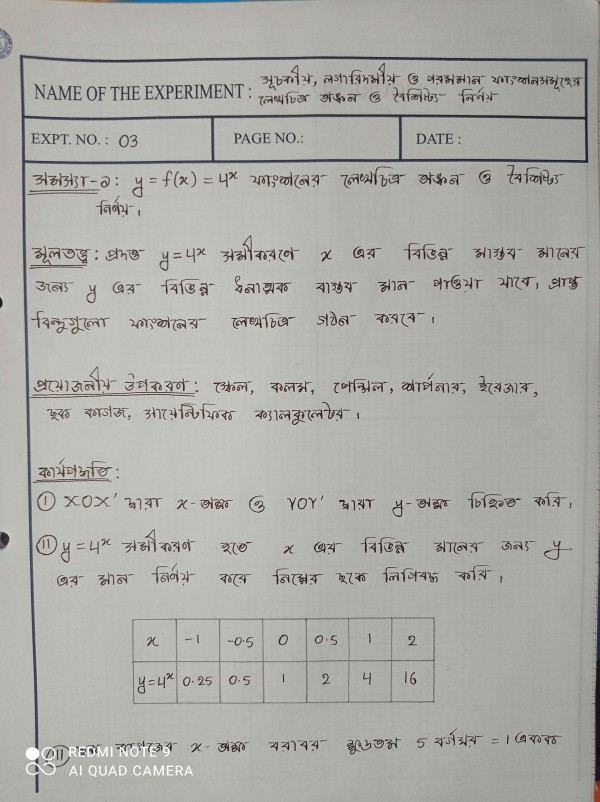 সূচকীয়, লগারিদমীয় ও পরমমান ফাংশনসমূহের
NAME OF THE EXPERIMENT : লেখচিত্র অঙ্কন ও বৈশিষ্ট্য নির্ণয়
EXPT. NO. : 03 PAGE NO.: DATE :
সমস্যা-১: y = f(x) = 4ˣ ফাংশনের লেখচিত্র অঙ্কন ও বৈশিষ্ট্য
নির্ণয়।
মূলতত্ত্ব: প্রদত্ত y = 4ˣ সমীকরণে x এর বিভিন্ন বাস্তব মানের
জন্য y এর বিভিন্ন ধনাত্মক বাস্তব মান পাওয়া যাবে, প্রাপ্ত
বিন্দুগুলো ফাংশনের লেখচিত্র গঠন করবে।
প্রয়োজনীয় উপকরণ: স্কেল, কলম, পেন্সিল, শার্পনার, ইরেজার,
ছক কাগজ, সায়েন্টিফিক ক্যালকুলেটর।
কার্যপদ্ধতি:
(i) XOX' দ্বারা x-অক্ষ ও YOY' দ্বারা y-অক্ষ চিহ্নিত করি।
(ii) y = 4ˣ সমীকরণ হতে x এর বিভিন্ন মানের জন্য y
এর মান নির্ণয় করে নিম্নের ছকে লিপিবদ্ধ করি।
x -1 -0.5 0 0.5 1 2
y=4ˣ 0.25 0.5 1 2 4 16
(iii) x-অক্ষ বরাবর ক্ষুদ্রতম 5 বর্গঘর = 1 একক
REDMI NOTE 9
AI QUAD CAMERA